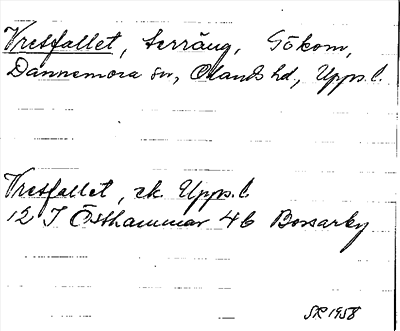 Vretfallet, terräng, Gökom,
Dannemora sn, Olands hd, Upps. l.
Vretfallet, ek. Upps. l.
12 I Östhammar 4b Bossarby
SR 1958